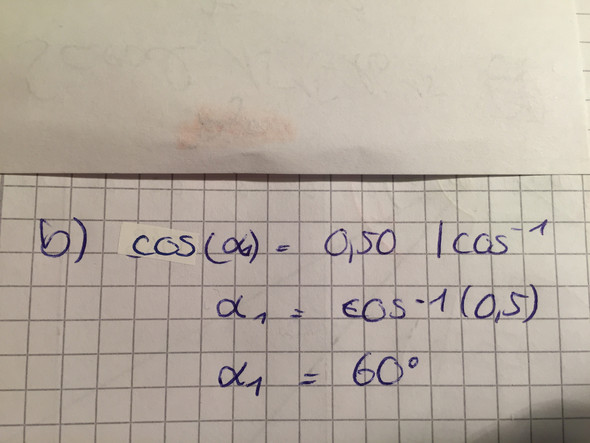 b) cos(α) = 0,50 | cos⁻¹
α₁ = cos⁻¹(0,5)
α₁ = 60°